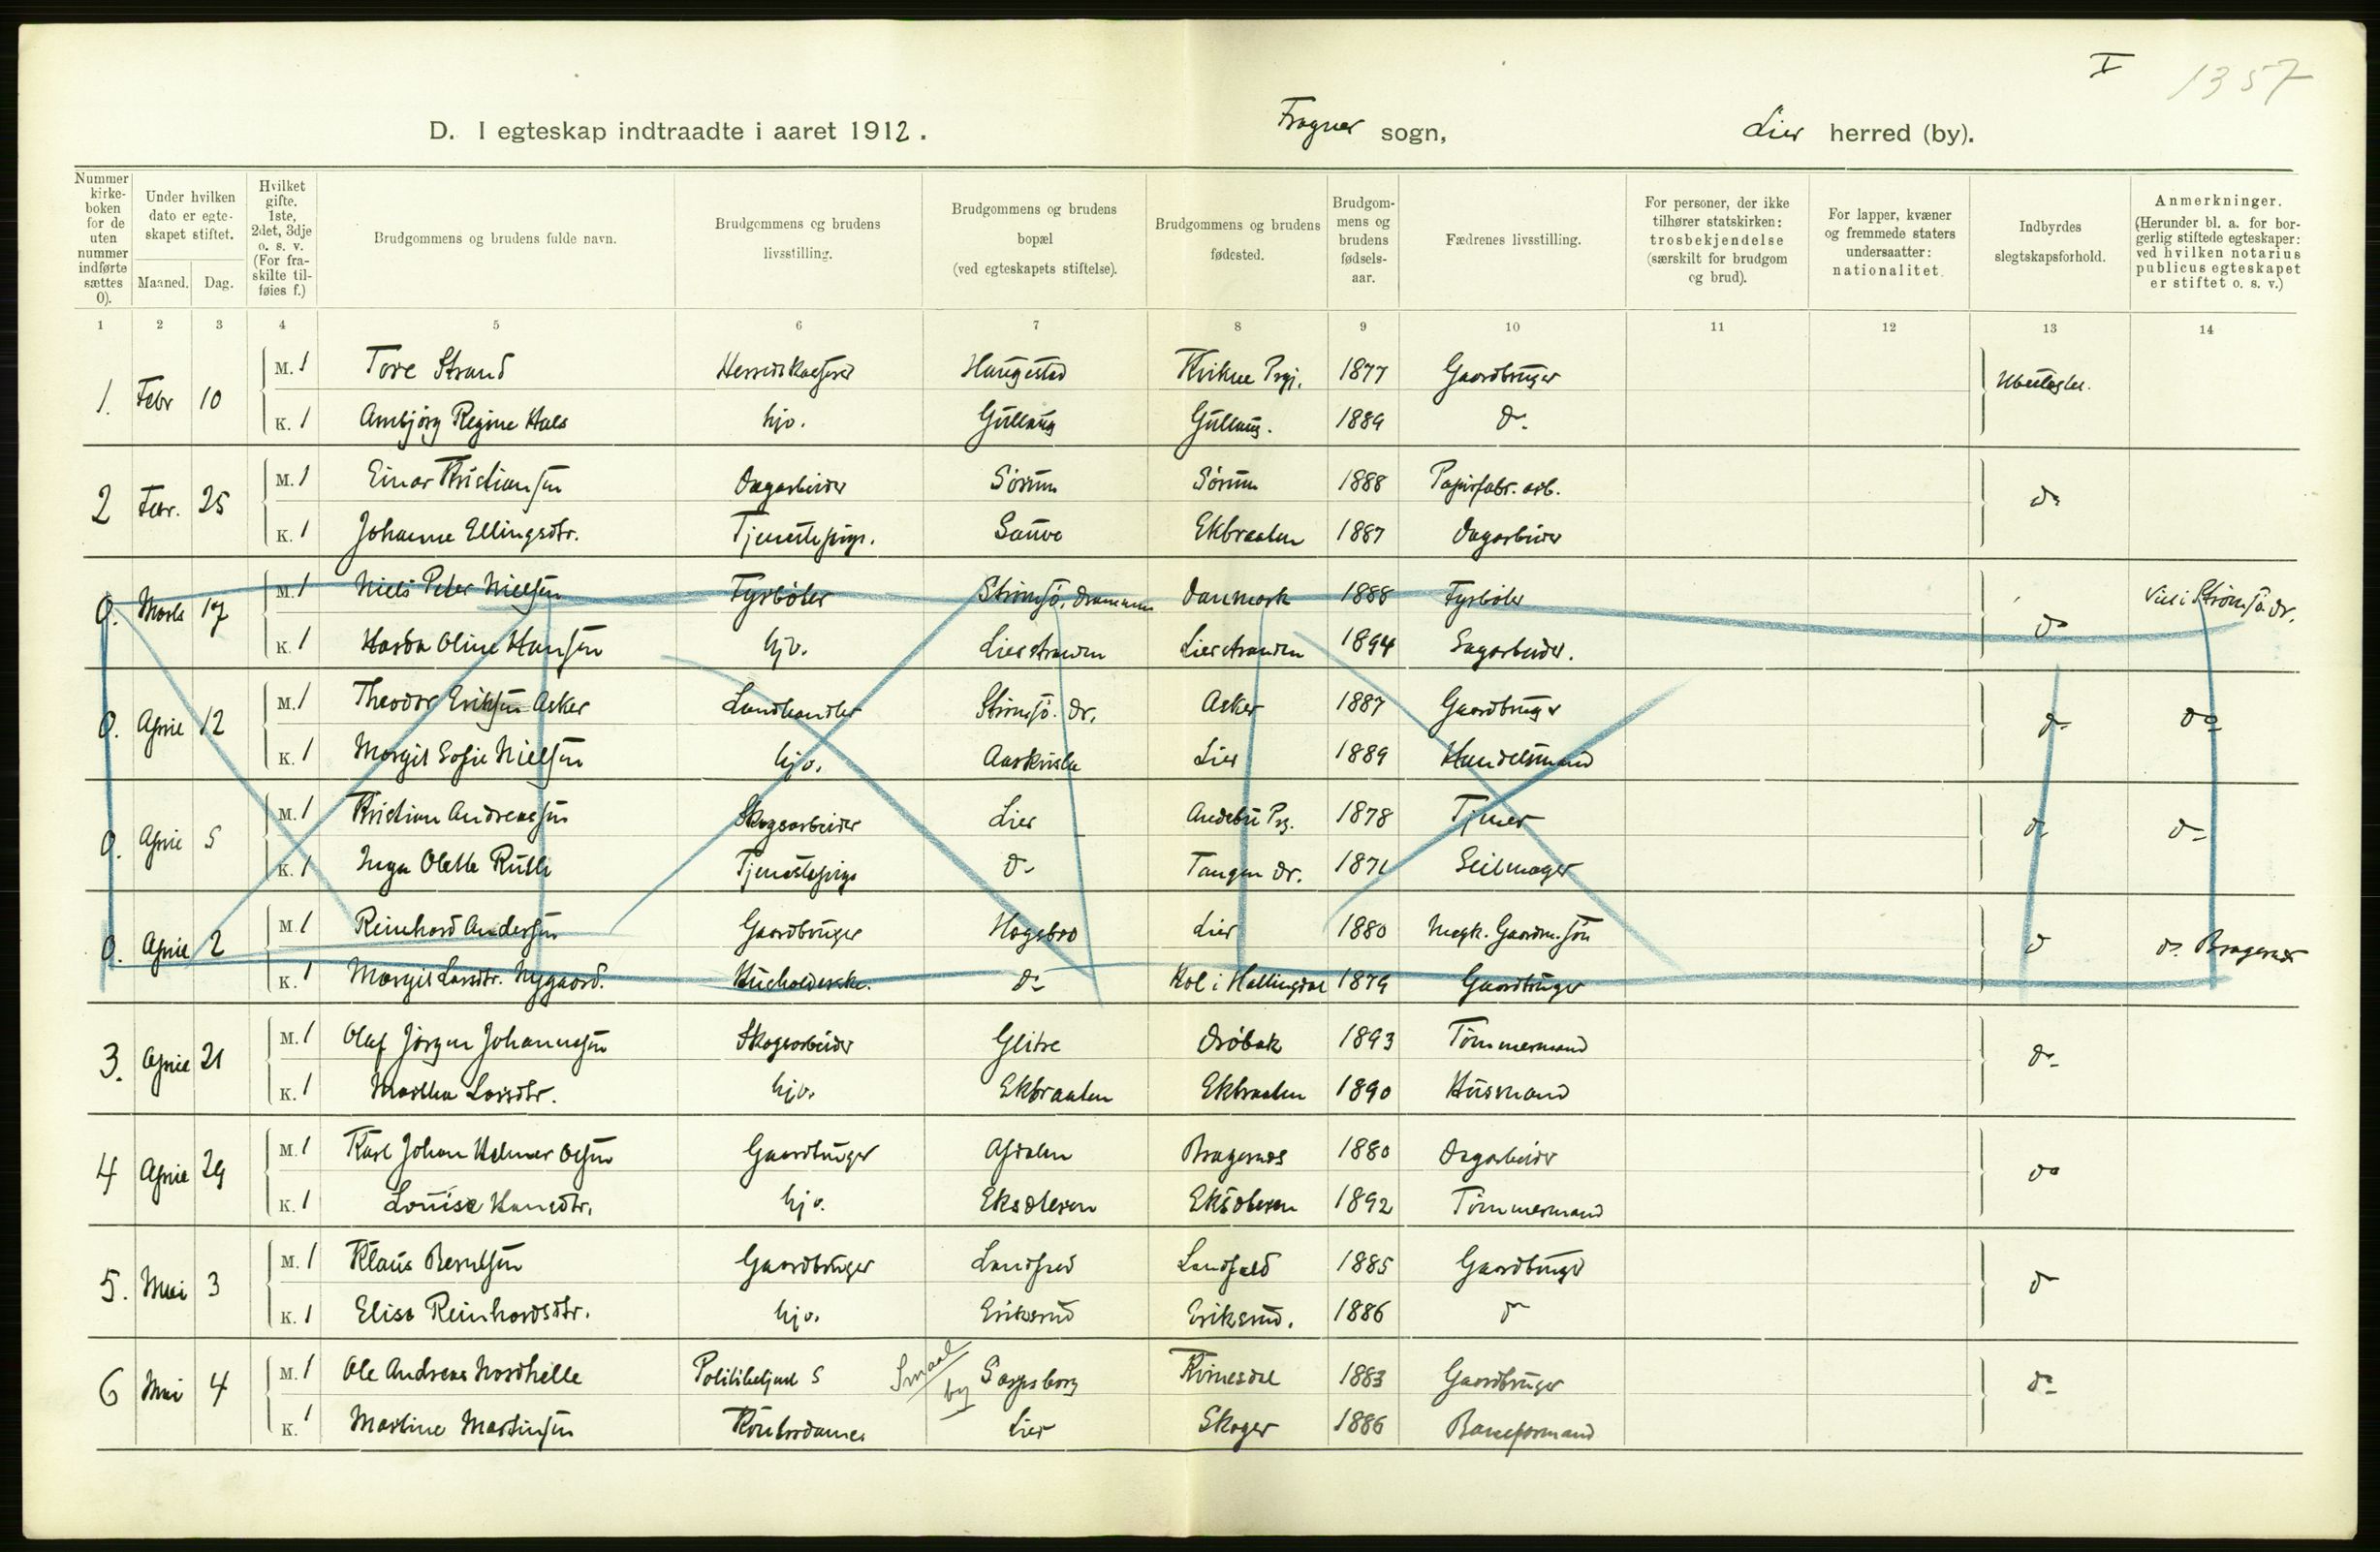 I 1357
D. I egteskap indtraadte i aaret 1912. Frogner sogn, Lier herred (by).
Nummer kirkeboken for de uten nummer indførte sættes 0).
Under hvilken dato er egteskapet stiftet.
Maaned. Dag.
Hvilket gifte. 1ste, 2det, 3dje o. s. v. (For fraskilte tilføies f.)
Brudgommens og brudens fulde navn.
Brudgommens og brudens livsstilling.
Brudgommens og brudens bopæl (ved egteskapets stiftelse).
Brudgommens og brudens fødested.
Brudgommens og brudens fødselsaar.
Fædrenes livsstilling.
For personer, der ikke tilhører statskirken: trosbekjendelse (særskilt for brudgom og brud).
For lapper, kvæner og fremmede staters undersaatter: nationalitet.
Indbyrdes slegtskapsforhold.
Anmerkninger. (Herunder bl. a. for borgerlig stiftede egteskaper: ved hvilken notarius publicus egteskapet er stiftet o. s. v.)
1 2 3 4 5 6 7 8 9 10 11 12 13 14
1. Febr 10 M. 1 Tore Strand Herredskasserer Haugestad Kvikne Prgj. 1877 Gaardbruger
K. 1 Ambjørg Regine Hals hjv. Gullaug Gullaug. 1889 do.
2 Febr. 25 M. 1 Einar Kristiansen Dagarbeider Sørum Sørum 1888 Papirfabr. arb. do
K. 1 Johanne Ellingsdtr. Tjenestepige. Sauvo Ekbraaten 1887 Dagarbeider
0. Marts 17 M. 1 Niels Peter Nielsen Fyrbøter Strømsø, Drammen Danmark 1888 Fyrbøter do Viet i Strømsø Dr.
K. 1 Hasda Oline Hansen hjv. Lierstranden Lierstranden 1894 Sagarbeider.
0. April 12 M. 1 Theodor Eriksen Asker Landhandler Strømsø. Dr. Asker 1887 Gaardbruger do do
K. 1 Margit Sofie Nielsen hjv. Lier 1889 Handelsmand
0. April 5 M. 1 Kristian Andreassen Skogsarbeider Lier Andebu Prg. 1878 do do
K. 1 Inga Olette Ruth Tjenestepige do Tangen Dr. 1871 Seilmager
0. April 2 M. 1 Reinhard Andersen Gaardbruger Hogsbro Lier 1880 do do. Bragernes
K. 1 Margit Larsdtr. Nygaard. Husholderske. do Hol i Hallingdal 1879 Gaardbruger
3. April 21 M. 1 Olaf Jørgen Johannesen Skogsarbeider Glitre Drøbak 1893 Tømmermand do
K. 1 Marthea Larsdtr. hjv. Ekbraaten Ekbraaten 1890 Husmand
4 April 29 M. 1 Karl Johan Helmer Olsen Gaardbruger Afdalen Bragernes 1880 Dagarbeider do
K. 1 Louise Hansdtr. hjv. Eksdteren Eksdteren 1892 Tømmermand
5. Mai 3 M. 1 Klaus Berntsen Gaardbruger Landfald Landfald 1885 Gaardbruger do
K. 1 Elise Reinhardsdtr. hjv. Eriksrud Eriksrud. 1886 do
6 Mai 4 M. 1 Ole Andreas Nordhelle Politibetjent S Smaal by Sarpsborg Kvinesdal 1883 Gaardbruger do
K. 1 Martine Martinsen Kontordame Lier Skoger 1886 Baneformand